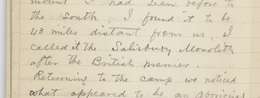 mount I had seen before to
the South, I found it to be
40 miles distant from us, I
called it the Salisbury Monolith
after the British premier.
Returning to the camp we noticed
what appeared to be an Aboriginal